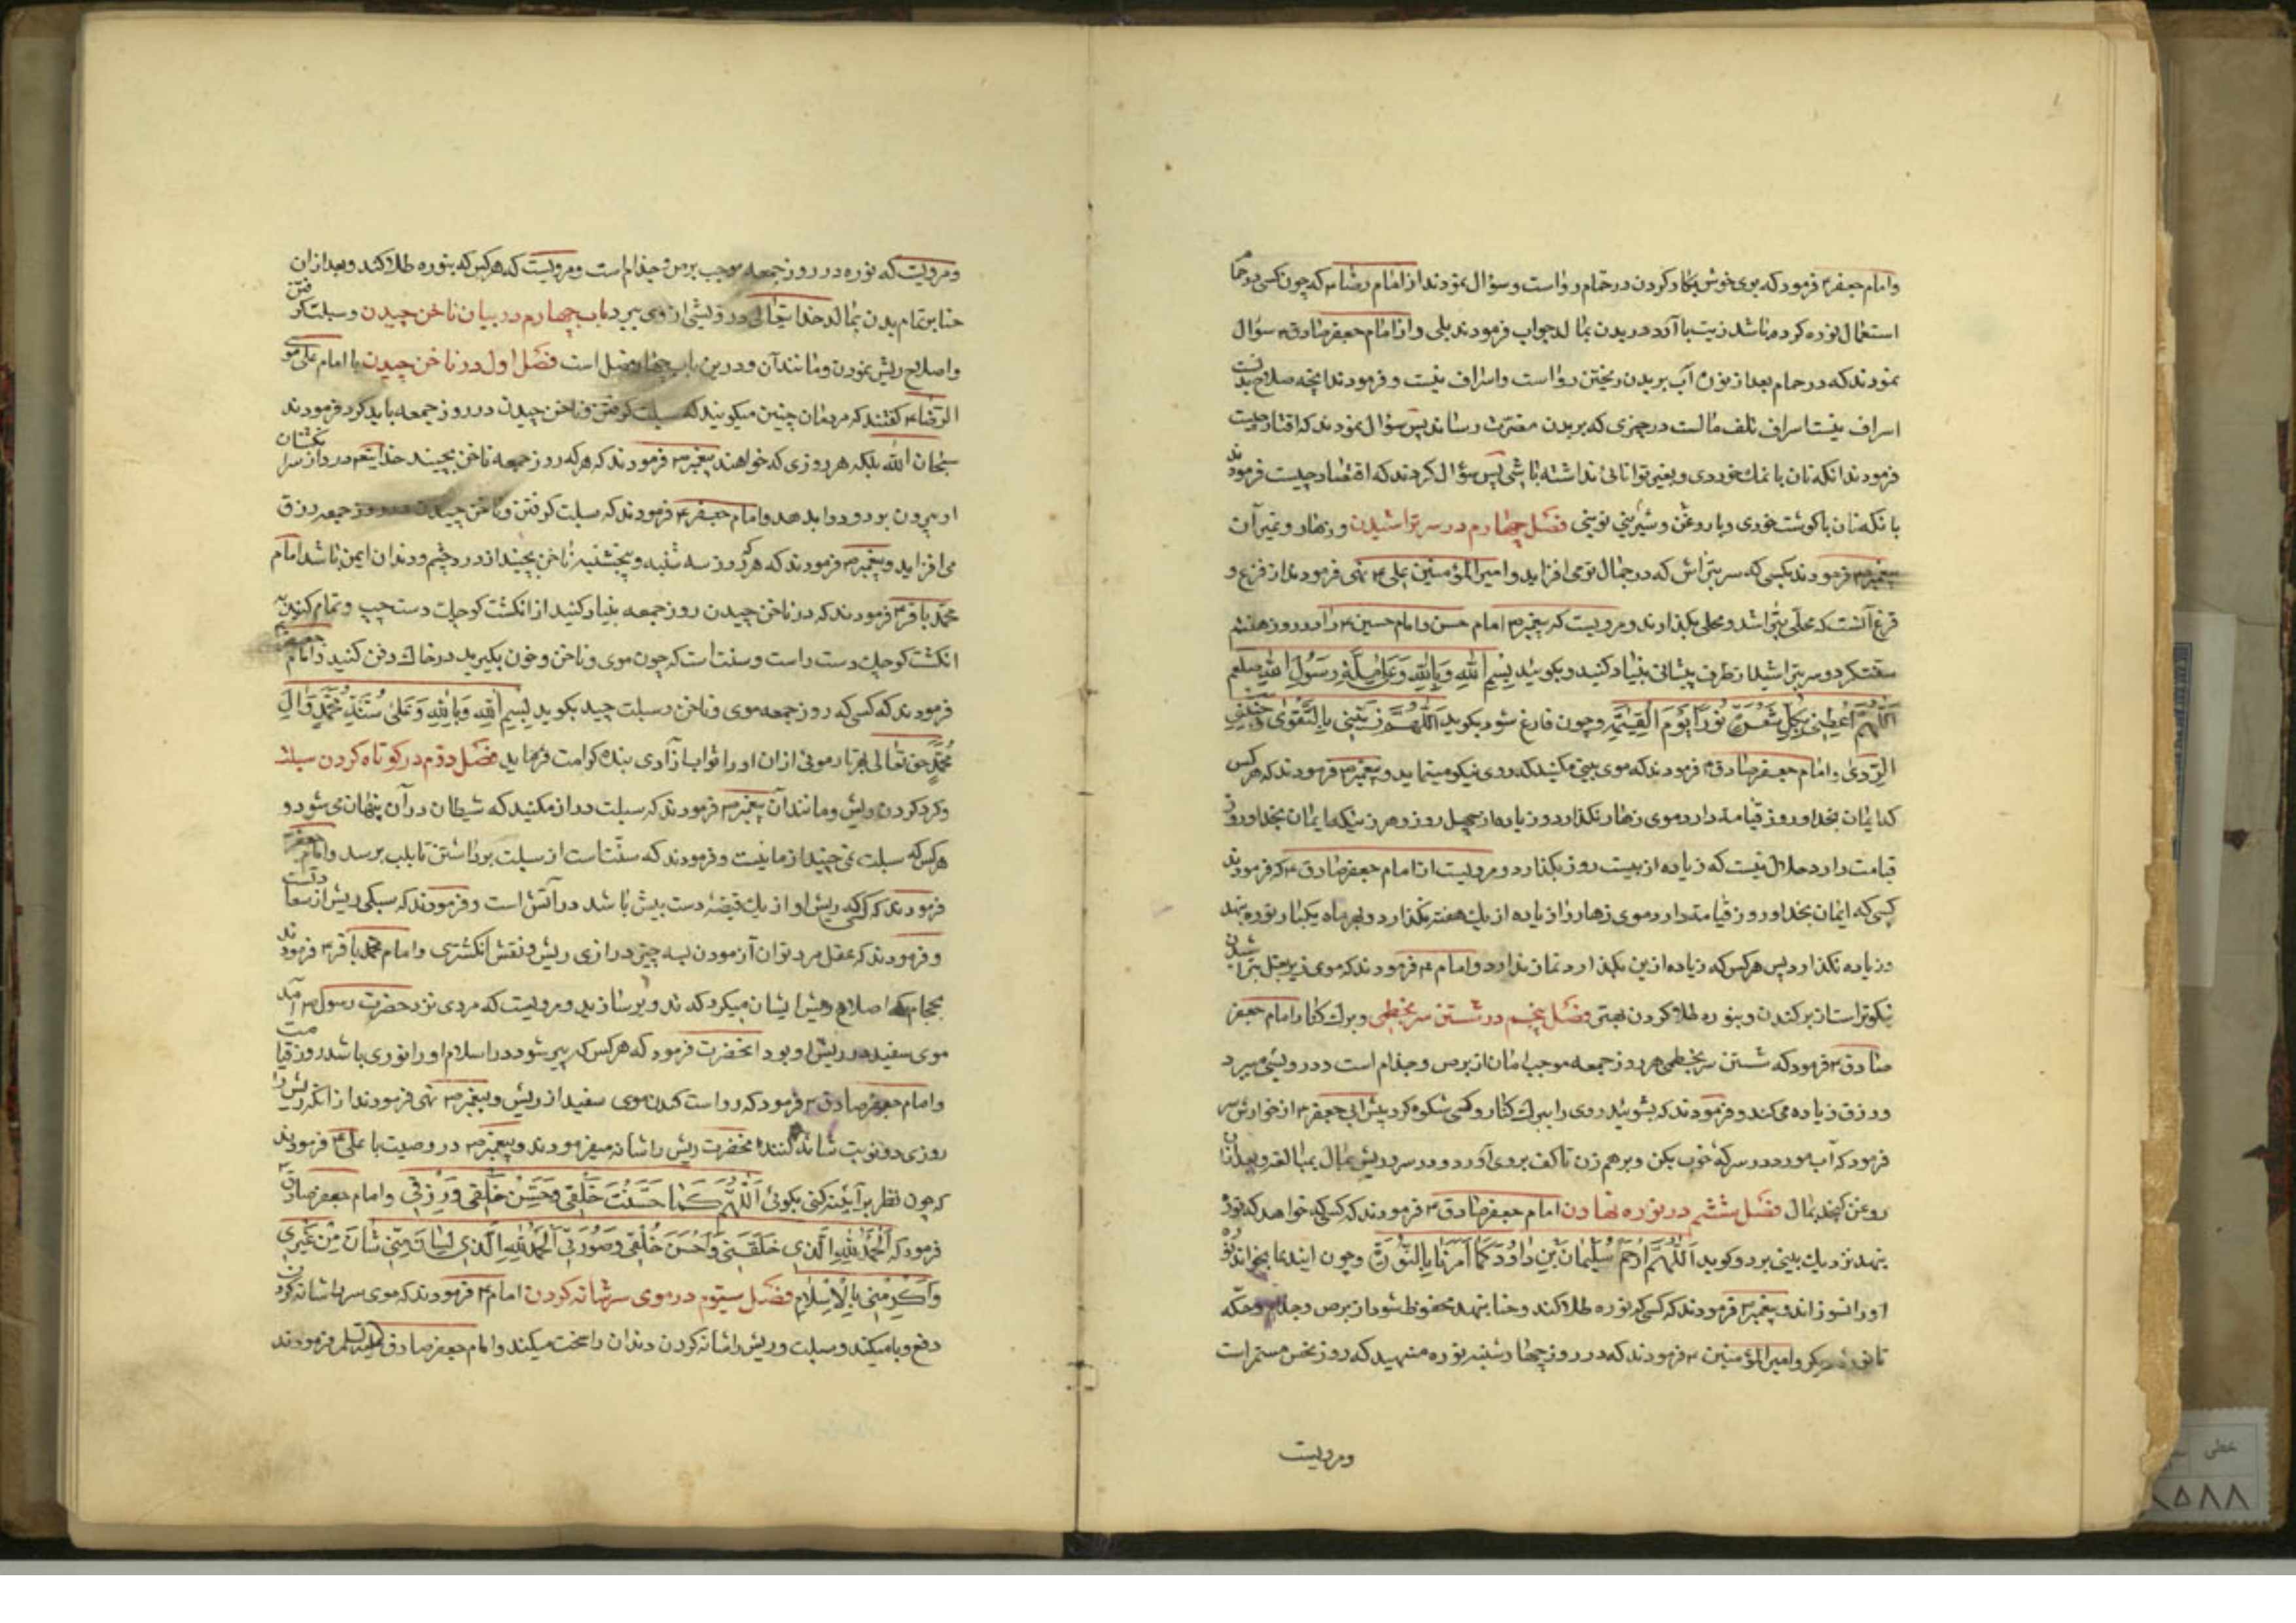 وامام جعفر۴ فرمود که بوی خوش بکار کردن در حمام رواست وسؤال نمودند از امام رضا۴ که چون کسی در حمام
استعمال نوره کرده باشد زیت با آرد در بدن بمالد جواب فرمودند بلی واز امام جعفر صادق۴ سؤال
نمودند که در حمام بعد از نوره آب بر بدن ریختن رواست واسراف نیست وفرمودند آنچه صلاح بدنست
اسراف نیست اسراف تلف مالست در چیزی که بر بدن مضرت رساند پس سؤال نمودند که اقتار چیست
فرمودند آنکه نان با نمک خوردی وبغیر توانائی نداشته باشی پس سؤال کردند که اقتصاد چیست فرمودند
بانکه نان باکوشت خوری وبا روغن وشیرینی فصل چهارم در سر تراشیدن وزهار وغیر آن
پیغمبر۳ فرمودند بکسی که سر بتراش که در جمال تو می افزاید وامیر المؤمنین علی۴ نهی فرمودند از قزع و
قزع آنست که محلّی بتراشد ومحلی بکذارند ومرویست که پیغمبر۳ امام حسن وامام حسین۴ را در روز هفتم
سر بتراشید از طرف پیشانی بنیاد کنید وبکوئید بِسْمِ اللهِ وَبِاللهِ وَعَلیٰ مِلَّةِ رَسُولِ اللهِ صلعم
اَللّٰهُمَّ اَعْطِنی بِکُلِّ شَعْرَةٍ نُورًا یَوْمَ الْقِیٰمَةِ وچون فارغ شود بکوید اَللّٰهُمَّ زَیِّنّی بِالتَّقْویٰ وَجَنِّبْنِی
الرَّدیٰ وامام جعفر صادق۴ فرمودند که موی بینی مکنید که روی نیکو مینماید وپیغمبر۳ فرمودند که هر کس
که ایمان بخدا وروز قیامت دارد موی زهار نکذارد زیاده از چهل روز وهر زنیکه ایمان بخدا وروز
قیامت دارد حلال نیست که زیاده از بیست روز بکذارد ومرویست از امام جعفر صادق۴ که فرمودند
کسی که ایمان بخدا وروز قیامت دارد موی زهار را زیاده از یک هفته نکذارد وبهر ماه یکبار نوره بنهد
وزیاده نکذارد پس هر کس که زیاده ازین بکذارد نماز ندارد وامام۴ فرمودند که موی زیر بغل تراشیدن
نیکوتر است از بر کندن وبنوره طلا کردن بهتر فصل پنجم در شستن سر بخطمی وبرک کنار امام جعفر
صادق۴ فرمود که شستن سر بخطمی هر روز جمعه موجب امان از برص وجذام است ودرویشی میبرد
ورزق زیاده میکند وفرمودند که بشوئید روی را ببرک کنار وکسی شکوه کرد پیش ابی جعفر۴ از خوارش سر
فرمود که آب مورد در سرکه خوب بکن وبرهم زن تا کف بروی آورد ودر سر وریش بمال بمبالغه وبعد از آن
روغن کنجد بمال فصل ششم در نوره نهادن امام جعفر صادق۴ فرمودند که کسی که خواهد که نوره
بنهد نزدیک بینی برد وکوید اَللّٰهُمَّ ارْحَمْ سُلَیْمٰانَ بْنِ دٰاوُدَ کَمٰا اَمَرَنٰا بِالنُّوْرَةِ وچون ایندعا بخواند نوره
اورا نسوزاند وپیغمبر۳ فرمودند که کسی که نوره طلا کند وحنا بنهد محفوظ شود از برص وجذام وحکّه
تا نوره دیکر وامیر المؤمنین۴ فرمودند که در روز چهارشنبه نوره منهید که روز نحس مستمر است
ومرویست
ومرویست که نوره در روز جمعه موجب برص وجذام است ومرویست که هر کس که بنوره طلا کند وبعد از آن
حنا بر تمام بدن بمالد خدایتعالی درویشی از وی ببرد باب چهارم در بیان ناخن چیدن وسبلت کرفتن
واصلاح ریش نمودن ومانند آن ودرین باب چهار فصل است فصل اول در ناخن چیدن با امام علی موسی
الرضا۴ کفتند که مردمان چنین میکویند که سبلت کرفتن وناخن چیدن در روز جمعه باید کرد فرمودند
سُبحان الله بلکه هر روزی که خواهند پیغمبر۳ فرمودند که هر که روز جمعه ناخن بچیند خدایتعالی درد از سر انکشتان
او بیرون برد ودوا بدهد وامام جعفر۴ فرمودند که سبلت کرفتن وناخن چیدن در روز جمعه رزق
می افزاید وپیغمبر۳ فرمودند که هر که روز سه شنبه وپنجشنبه ناخن بچیند از درد چشم ودندان ایمن باشد امام
محمّد باقر۴ فرمودند که در ناخن چیدن روز جمعه بنیاد کنید از انکشت کوچک دست چپ وتمام کنید به
انکشت کوچک دست راست وسنت است که چون موی وناخن وخون بکیرید در خاک دفن کنید وامام جعفر۴
فرمودند که کسی که روز جمعه موی وناخن وسبلت چید بکوید بِسْمِ اللهِ وَبِاللهِ وَعَلیٰ سُنَّةِ مُحَمَّدٍ وَاٰلِ
مُحَمَّدٍ حق تعالی بهر تار موئی از ان اورا ثواب آزادی بنده کرامت فرماید فصل دوّم در کوتاه کردن سبلت
وکرد کردن ریش ومانند آن پیغمبر۳ فرمودند که سبلت دراز مکنید که شیطان در آن پنهان می شود و
هر کس که سبلت نمی چیند از ما نیست وفرمودند که سنّت است از سبلت برداشتن تا بلب برسد وامام جعفر۴
فرمودند که کسی که ریش او از یک قبضهٔ دست بیش باشد در آتش است وفرمودند که سبکی ریش از سعادتست
وفرمودند که عقل مرد توان آزمودن بسه چیز درازی ریش ونقش انکشتری وامام محمّد باقر۴ فرمودند
بحجام که اصلاح ریش ایشان میکرد که ومرویست که مردی نزد حضرت رسول۳ آمد
موی سفید در ریش او بود آنحضرت فرمود که هر کس که پیر شود در اسلام اورا نوری باشد روز قیامت
وامام جعفر صادق۴ فرمود که رواست کندن موی سفید از ریش وپیغمبر۳ نهی فرمودند از انکه ریش را
روزی دو نوبت شانه کنند آنحضرت ریش را شانه میفرمودند وپیغمبر۳ در وصیت با علی۴ فرمودند
که چون نظر بر آیینه کنی بکوئی اَللّٰهُمَّ کَمٰا حَسَّنْتَ خَلْقی فَحَسِّنْ خُلْقی وَرِزْقی وامام جعفر صادق۴
فرمود که اَلْحَمْدُ لِلّٰهِ الَّذی خَلَقَنی وَاَحْسَنَ خَلْقی وَصَوَّرَنی اَلْحَمْدُ لِلّٰهِ الَّذی مِنّی شٰانَ مِنْ غَیْری
وَاَکْرَمَنی بِالْاِسْلٰامِ فصل سیّوم در موی سر شانه کردن امام۴ فرمودند که موی سر را شانه کردن
دفع وبا میکند وسبلت وریش را شانه کردن دندان را سخت میکند وامام جعفر صادق فرمودند
خطی
۸۵۸۸